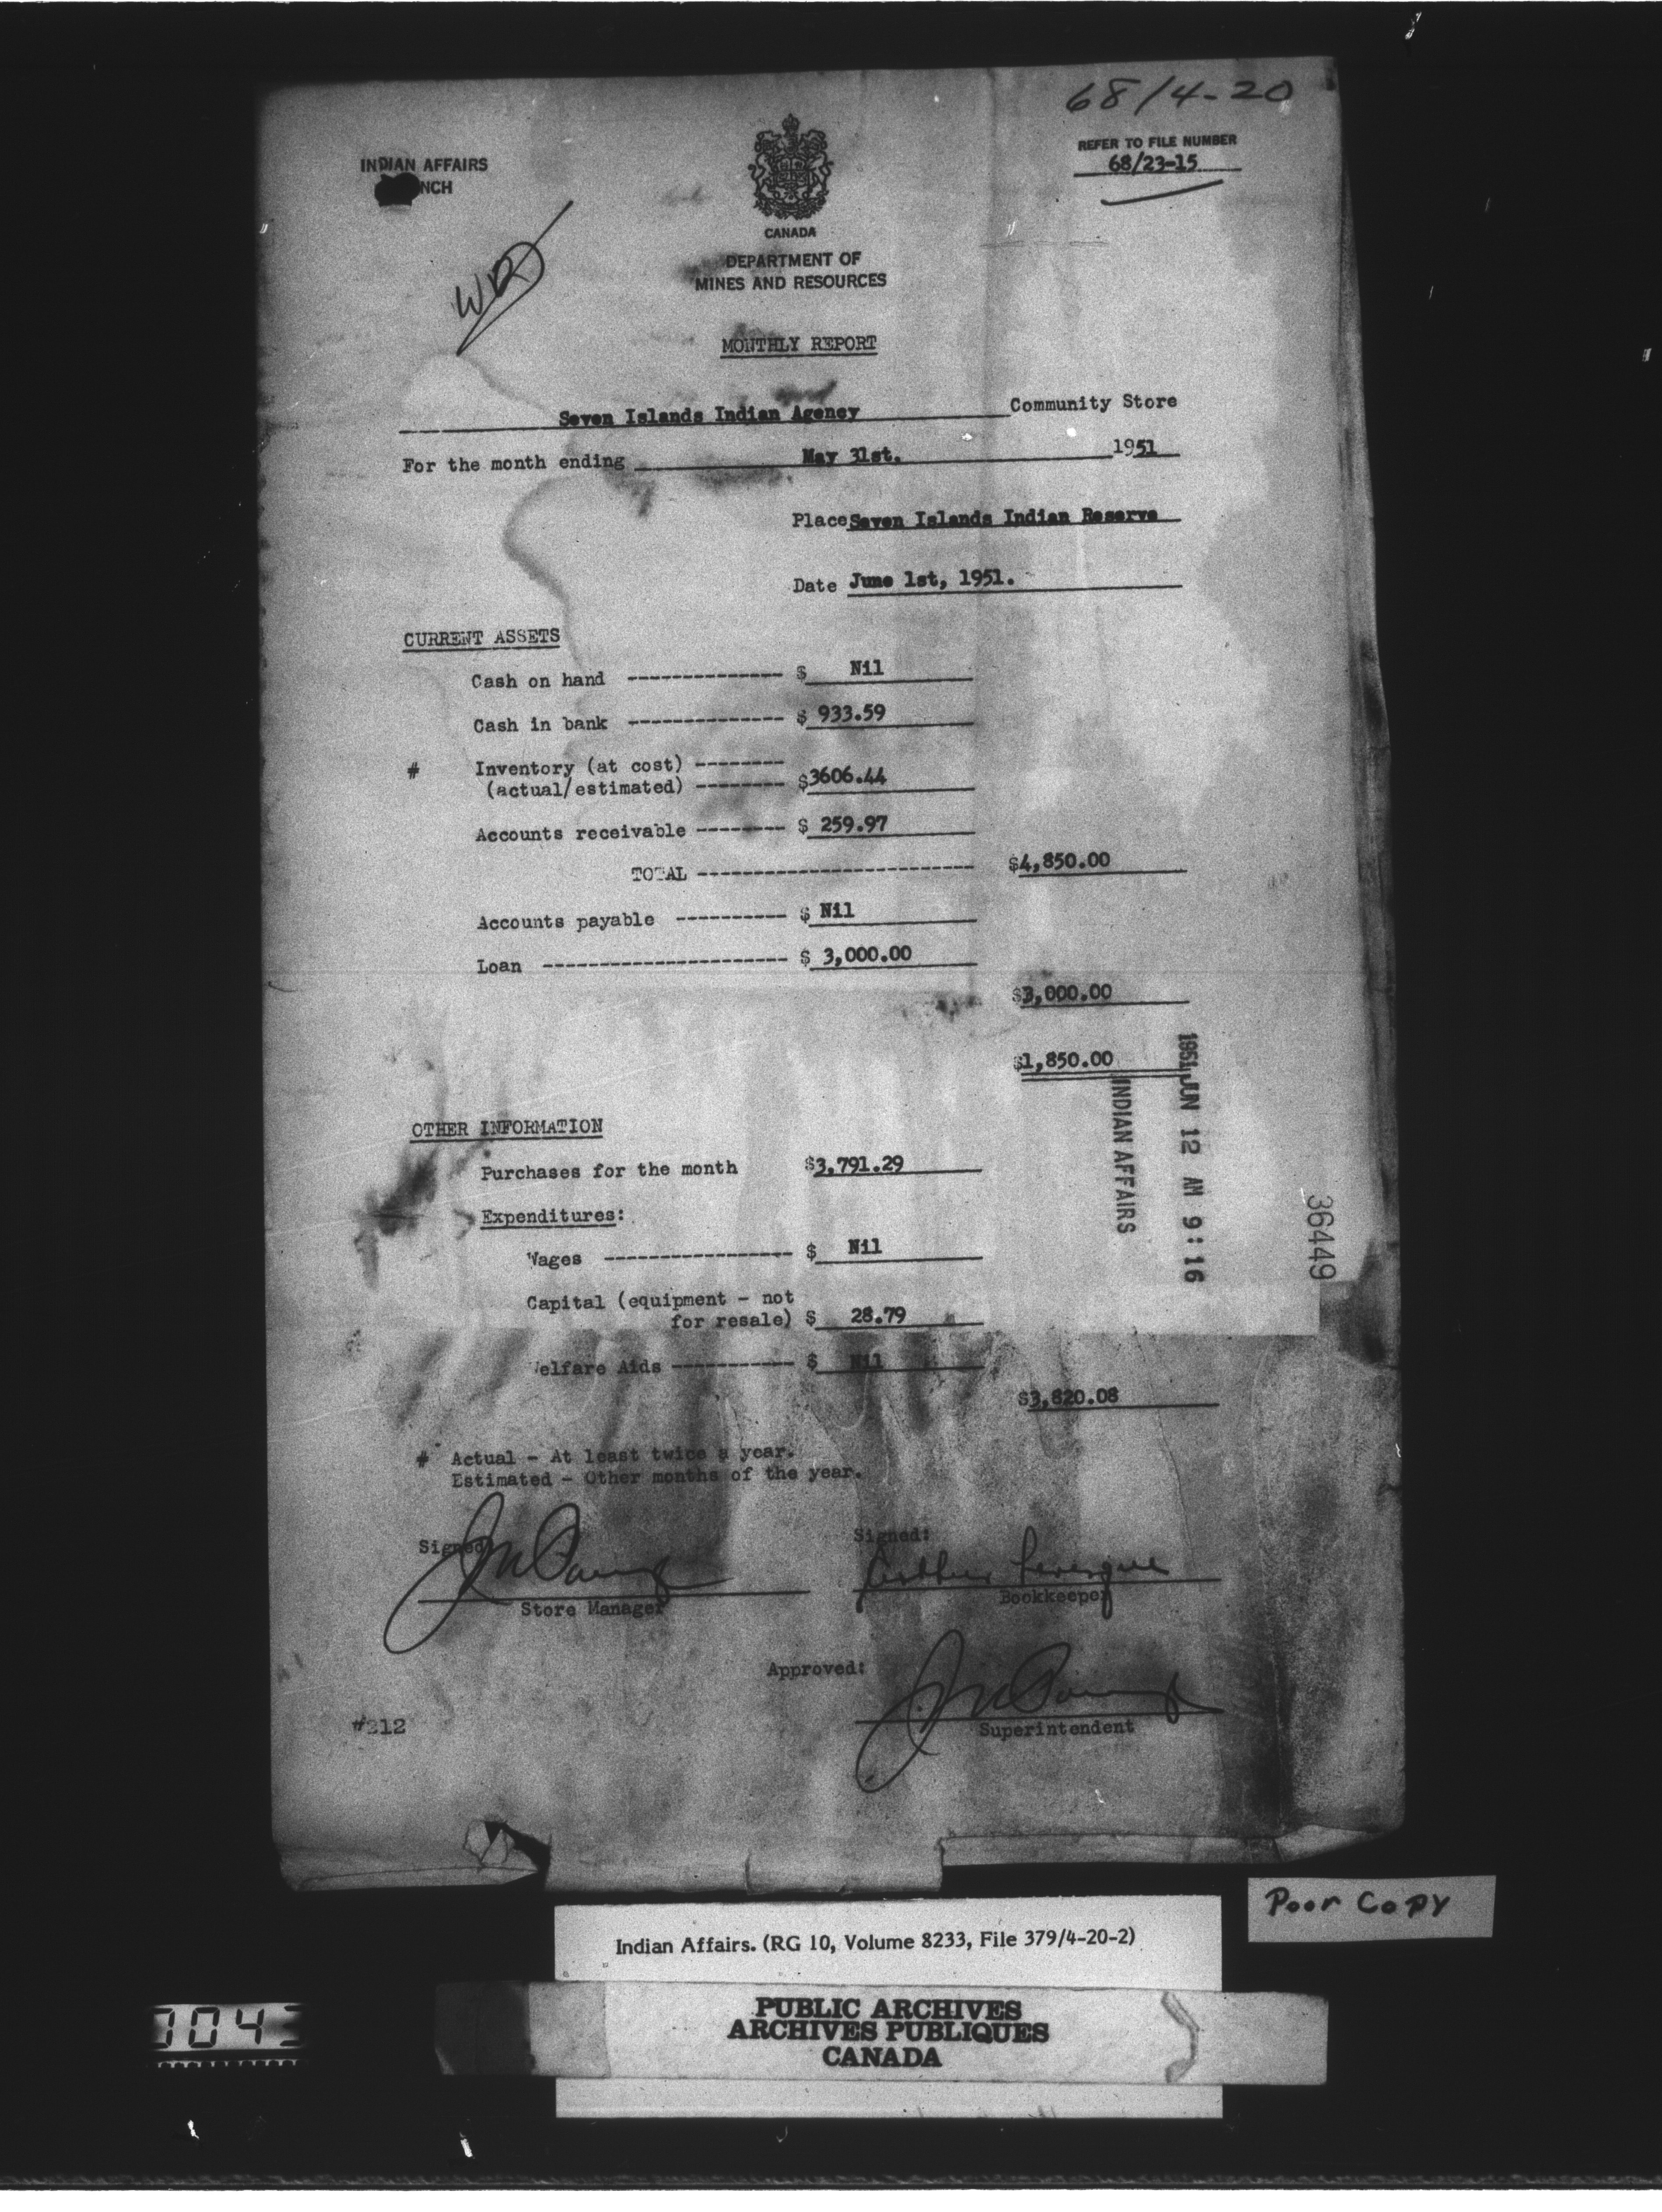 68/4-20
INDIAN AFFAIRS
NCH
REFER TO FILE NUMBER
68/23-15
WR
CANADA
DEPARTMENT OF
MINES AND RESOURCES
MONTHLY REPORT
Seven Islands Indian Agency Community Store
For the month ending May 31st. 1951
Place Seven Islands Indian Reserve
Date June 1st, 1951.
CURRENT ASSETS
Cash on hand -------------- $ Nil
Cash in bank -------------- $ 933.59
# Inventory (at cost) --------
(actual/estimated) -------- $3606.44
Accounts receivable -------- $ 259.97
TOTAL ------------------------- $4,850.00
Accounts payable ---------- $ Nil
Loan ---------------------- $ 3,000.00
$3,000.00
$1,850.00
1951 JUN 12 AM 9:16
INDIAN AFFAIRS
36449
OTHER INFORMATION
Purchases for the month $3,791.29
Expenditures:
Wages ----------------- $ Nil
Capital (equipment - not
for resale) $ 28.79
elfare Aids ----------- $ Nil
$3,820.08
# Actual - At least twice a year.
Estimated - Other months of the year.
Signed:
Store Manager
Signed:
Arthur Levesque
Bookkeeper
Approved:
Superintendent
#212
Poor Copy
Indian Affairs. (RG 10, Volume 8233, File 379/4-20-2)
PUBLIC ARCHIVES
ARCHIVES PUBLIQUES
CANADA